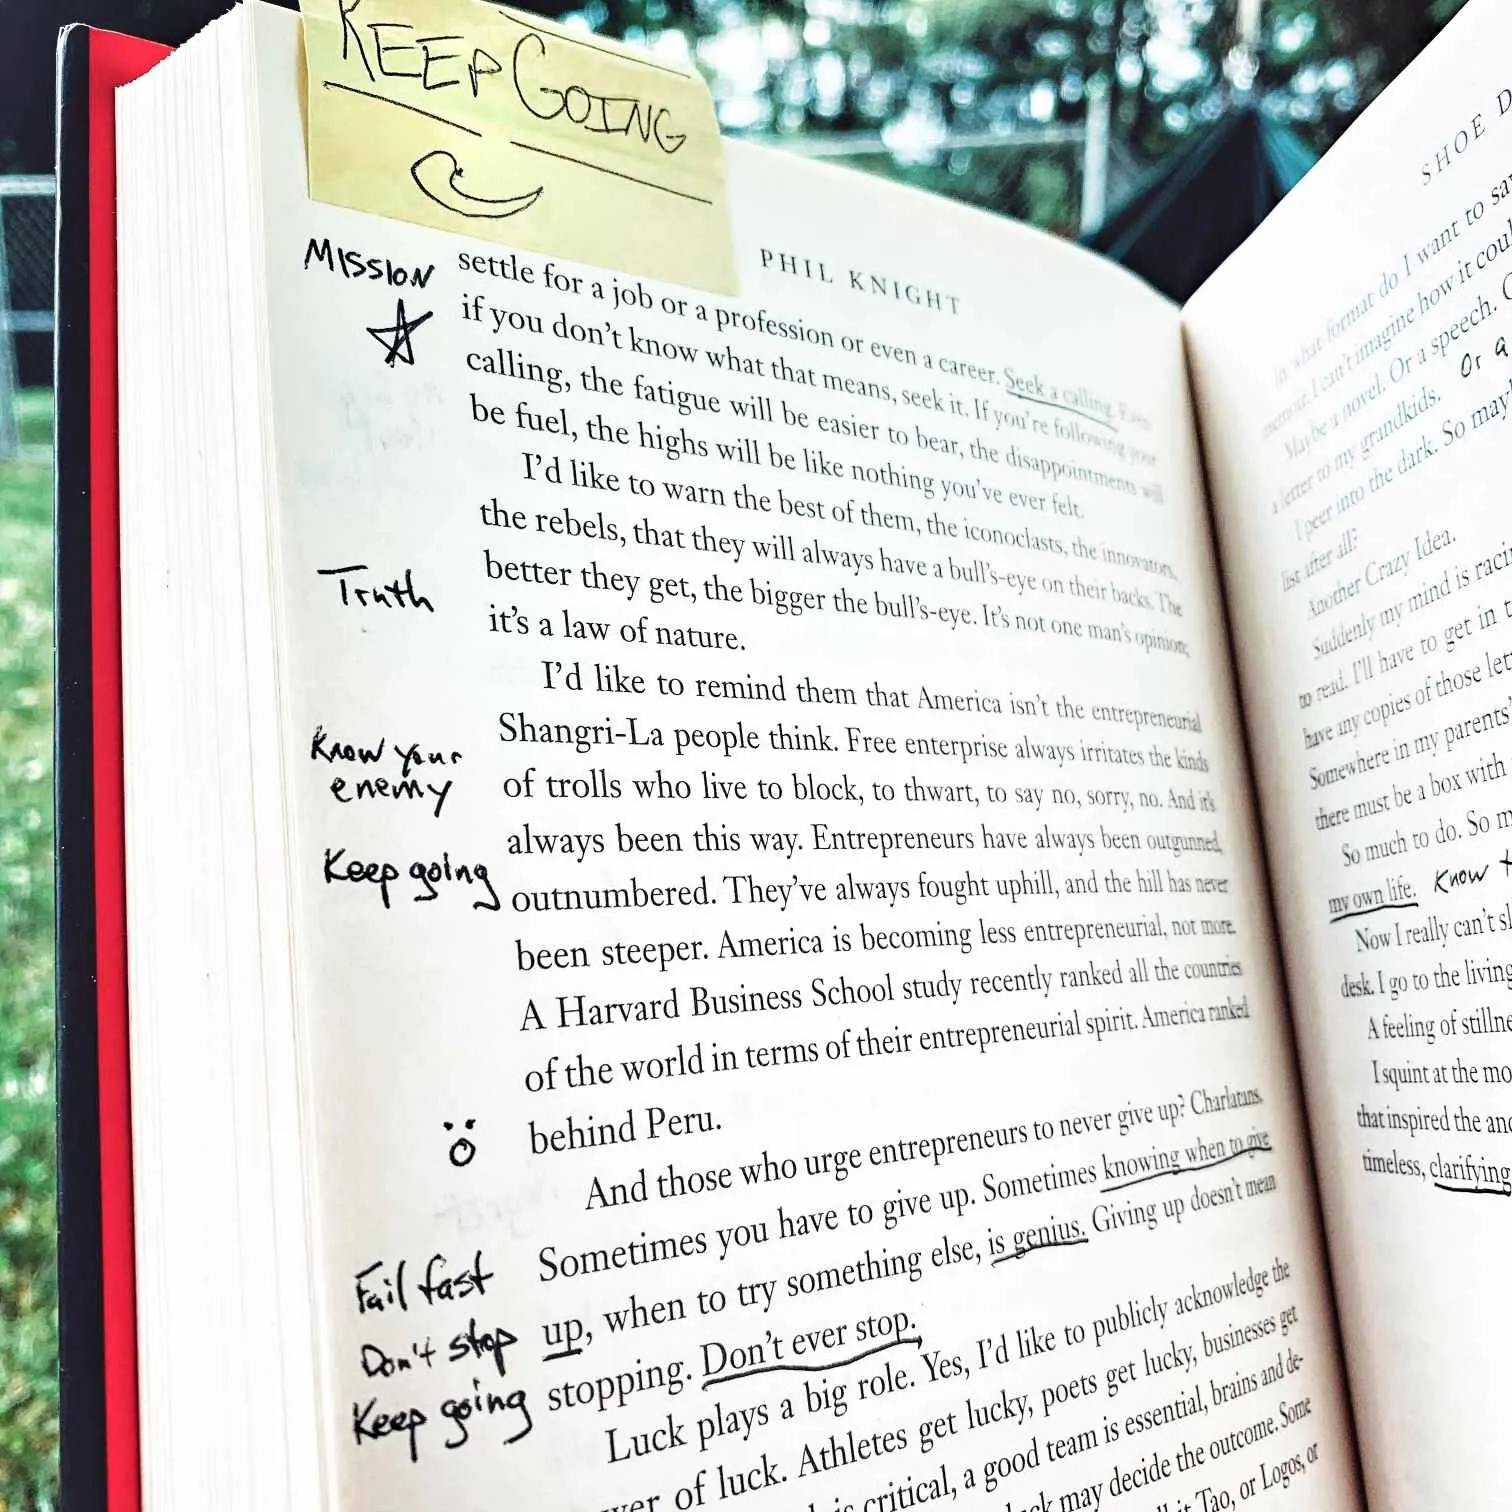 KEEP GOING
PHIL KNIGHT
Mission
settle for a job or a profession or even a career. Seek a calling. Even
if you don't know what that means, seek it. If you're following your
calling, the fatigue will be easier to bear, the disappointments will
be fuel, the highs will be like nothing you've ever felt.
I'd like to warn the best of them, the iconoclasts, the innovators,
the rebels, that they will always have a bull's-eye on their backs. The
better they get, the bigger the bull's-eye. It's not one man's opinion;
Truth
it's a law of nature.
I'd like to remind them that America isn't the entrepreneurial
Shangri-La people think. Free enterprise always irritates the kinds
Know your
enemy
of trolls who live to block, to thwart, to say no, sorry, no. And it's
always been this way. Entrepreneurs have always been outgunned,
Keep going
outnumbered. They've always fought uphill, and the hill has never
been steeper. America is becoming less entrepreneurial, not more.
A Harvard Business School study recently ranked all the countries
of the world in terms of their entrepreneurial spirit. America ranked
behind Peru.
And those who urge entrepreneurs to never give up? Charlatans.
Sometimes you have to give up. Sometimes knowing when to give
Fail fast
up, when to try something else, is genius. Giving up doesn't mean
Don't stop
stopping. Don't ever stop.
Keep going
Luck plays a big role. Yes, I'd like to publicly acknowledge the
of luck. Athletes get lucky, poets get lucky, businesses get
is critical, a good team is essential, brains and de-
may decide the outcome. Some
it Tao, or Logos, or
SHOE
In what format do I want to
memoir. I can't imagine how it
Maybe a novel. Or a speech.
a letter to my grandkids. Or a
I peer into the dark. So
list after all?
Another Crazy Idea.
Suddenly my mind is
to read. I'll have to get in
have any copies of those
Somewhere in my parents'
there must be a box with
So much to do. So
my own life. Know
Now I really can't
desk. I go to the living
A feeling of
I squint at the
that inspired the
timeless, clarifying